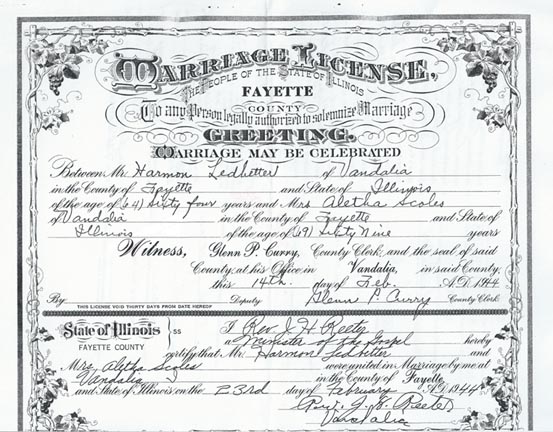 MARRIAGE LICENSE,
THE PEOPLE OF THE STATE OF ILLINOIS
FAYETTE
COUNTY
To any Person legally authorized to solemnize Marriage
GREETING.
MARRIAGE MAY BE CELEBRATED
Between Mr. Harmon Ledbetter of Vandalia
in the County of Fayette and State of Illinois
of the age of (64) Sixty four years and Mrs Aletha Scoles
of Vandalia in the County of Fayette and State of
Illinois of the age of (69) Sixty Nine years
Witness, Glenn P. Curry, County Clerk, and the seal of said
County, at his Office in Vandalia, in said County,
this 14th. day of Feb. A.D. 1944
By: Deputy Glenn P. Curry County Clerk
THIS LICENSE VOID THIRTY DAYS FROM DATE HEREOF
State of Illinois } SS I Rev J H Reeter
FAYETTE COUNTY a Minister of the Gospel hereby
certify that Mr. Harmon Ledbetter and
Mrs. Aletha Scoles were united in Marriage by me at
Vandalia in the County of Fayette
and State of Illinois on the 23rd day of February A.D. 1944
Rev. J. H. Reeter
Vandalia